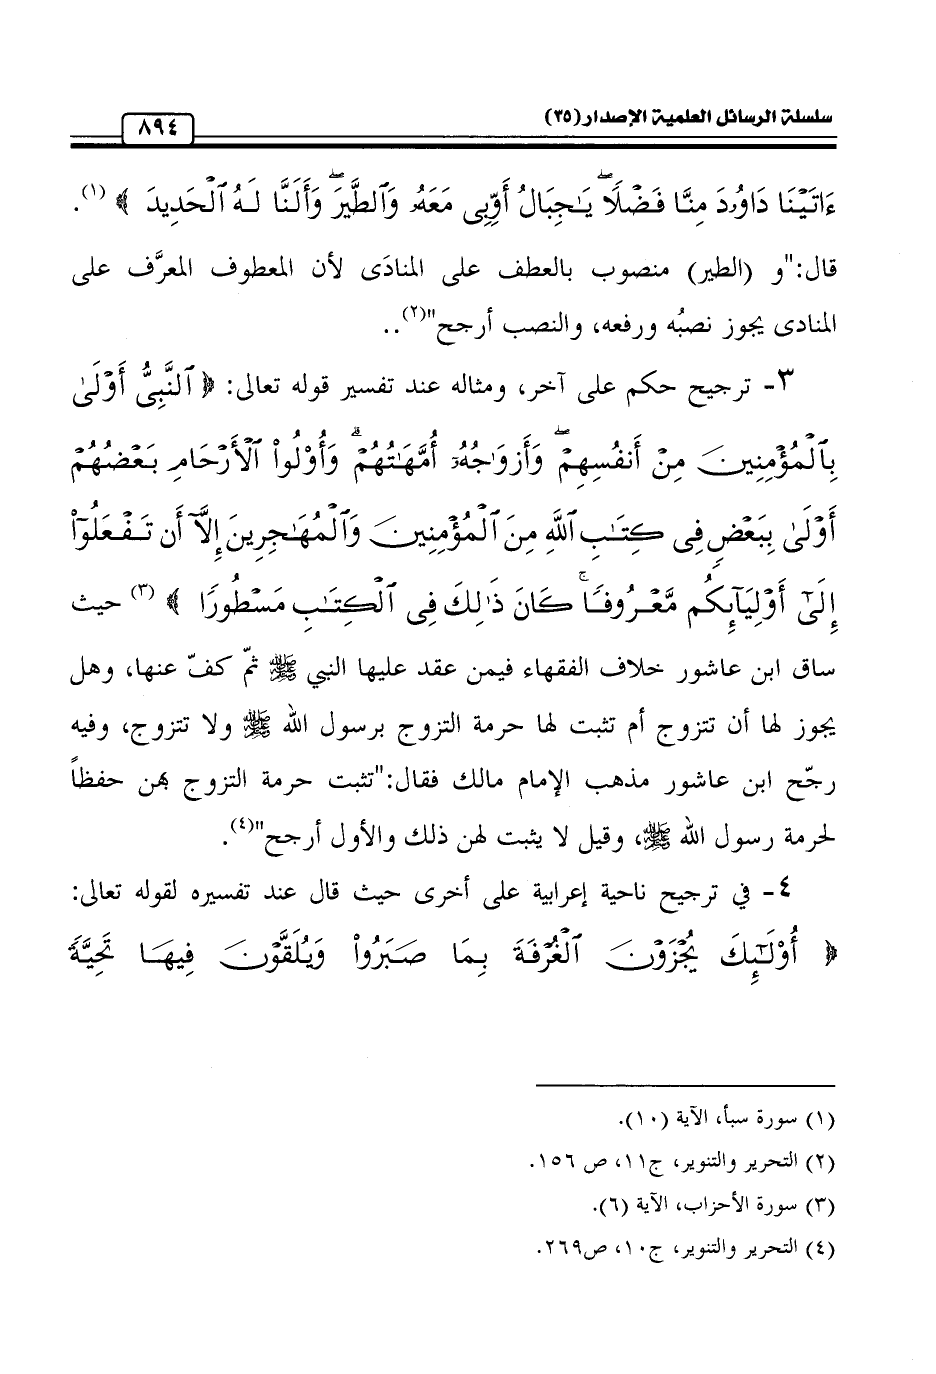 سلسلة الرسائل العلمية الإصدار(٣٥)
٨٩٤
ءَاتَيْنَا دَاوُۥدَ مِنَّا فَضْلًا ۖ يَٰجِبَالُ أَوِّبِى مَعَهُۥ وَٱلطَّيْرَ ۖ وَأَلَنَّا لَهُ ٱلْحَدِيدَ ﴾ (١).
قال:"و (الطير) منصوب بالعطف على المنادَى لأن المعطوف المعرَّف على
المنادى يجوز نصبُه ورفعه، والنصب أرجح"(٢)..
٣- ترجيح حكم على آخر، ومثاله عند تفسير قوله تعالى: ﴿ ٱلنَّبِىُّ أَوْلَىٰ
بِٱلْمُؤْمِنِينَ مِنْ أَنفُسِهِمْ ۖ وَأَزْوَٰجُهُۥٓ أُمَّهَٰتُهُمْ ۗ وَأُو۟لُوا۟ ٱلْأَرْحَامِ بَعْضُهُمْ
أَوْلَىٰ بِبَعْضٍ فِى كِتَٰبِ ٱللَّهِ مِنَ ٱلْمُؤْمِنِينَ وَٱلْمُهَٰجِرِينَ إِلَّآ أَن تَفْعَلُوٓا۟
إِلَىٰٓ أَوْلِيَآئِكُم مَّعْرُوفًا ۚ كَانَ ذَٰلِكَ فِى ٱلْكِتَٰبِ مَسْطُورًا ﴾ (٣) حيث
ساق ابن عاشور خلاف الفقهاء فيمن عقد عليها النبي ﷺ ثمّ كفّ عنها، وهل
يجوز لها أن تتزوج أم تثبت لها حرمة التزوج برسول الله ﷺ ولا تتزوج، وفيه
رجّح ابن عاشور مذهب الإمام مالك فقال:"تثبت حرمة التزوج بهن حفظاً
لحرمة رسول الله ﷺ، وقيل لا يثبت لهن ذلك والأول أرجح"(٤).
٤- في ترجيح ناحية إعرابية على أخرى حيث قال عند تفسيره لقوله تعالى:
﴿ أُو۟لَٰٓئِكَ يُجْزَوْنَ ٱلْغُرْفَةَ بِمَا صَبَرُوا۟ وَيُلَقَّوْنَ فِيهَا تَحِيَّةً
(١) سورة سبأ، الآية (١٠).
(٢) التحرير والتنوير، ج١١، ص ١٥٦.
(٣) سورة الأحزاب، الآية (٦).
(٤) التحرير والتنوير، ج١٠، ص٢٦٩.